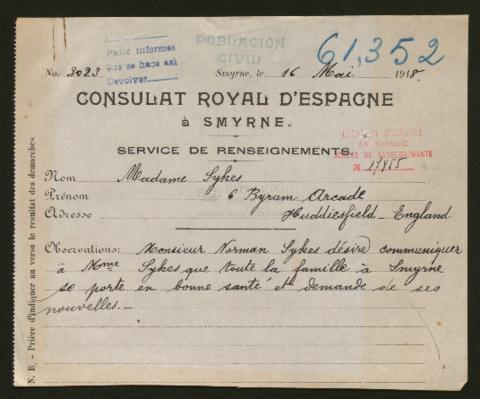 Pedir informes
que se hace así
Devolver
POBLACIÓN
CIVIL
61,352
No. 3023
Smyrne, le 16 Mai 1918.
CONSULAT ROYAL D'ESPAGNE
à SMYRNE.
SERVICE DE RENSEIGNEMENTS.
EN TURQUIE
SERVICE DE RENSEIGNEMENTS
No 17865
Nom Madame Sykes
Prénom 6 Byram Arcade
Adresse Huddiesfield - England
Observations: Monsieur Norman Sykes désire communiquer
à Mme Sykes que toute la famille à Smyrne
se porte en bonne santé et demande de ses
nouvelles.-
N. B. - Prière d'indiquer au verso le resultat des demarches.